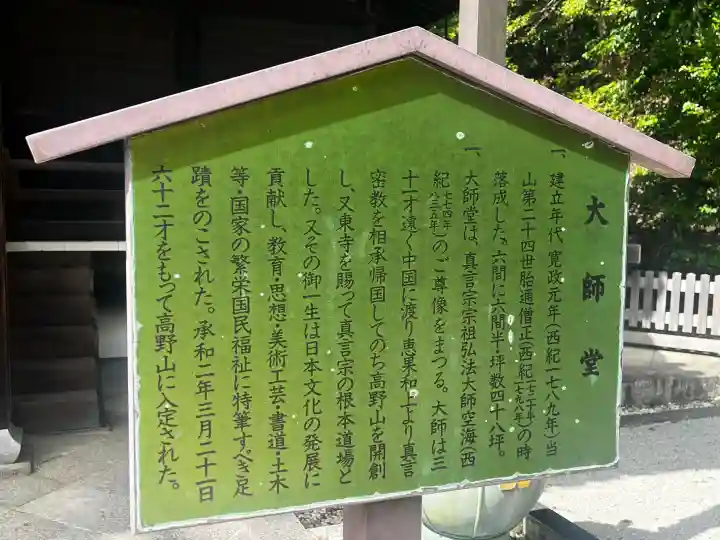 大師堂
一、建立年代 寛政元年(西紀一七八九年)当
山第二十四世胎通僧正(西紀一七二十年一七九八年)の時
落成した。六間に六間半・坪数四十八坪。
一、大師堂は、真言宗宗祖弘法大師空海(西
紀七七四年八三五年)のご尊像をまつる。大師は三
十一才遠く中国に渡り恵果和上より真言
密教を相承帰国してのち高野山を開創
し、又東寺を賜って真言宗の根本道場と
した。又その御一生は日本文化の発展に
貢献し、教育・思想・美術工芸・書道・土木
等・国家の繁栄国民福祉に特筆すべき足
蹟をのこされた。承和二年三月二十一日
六十二才をもって高野山に入定された。